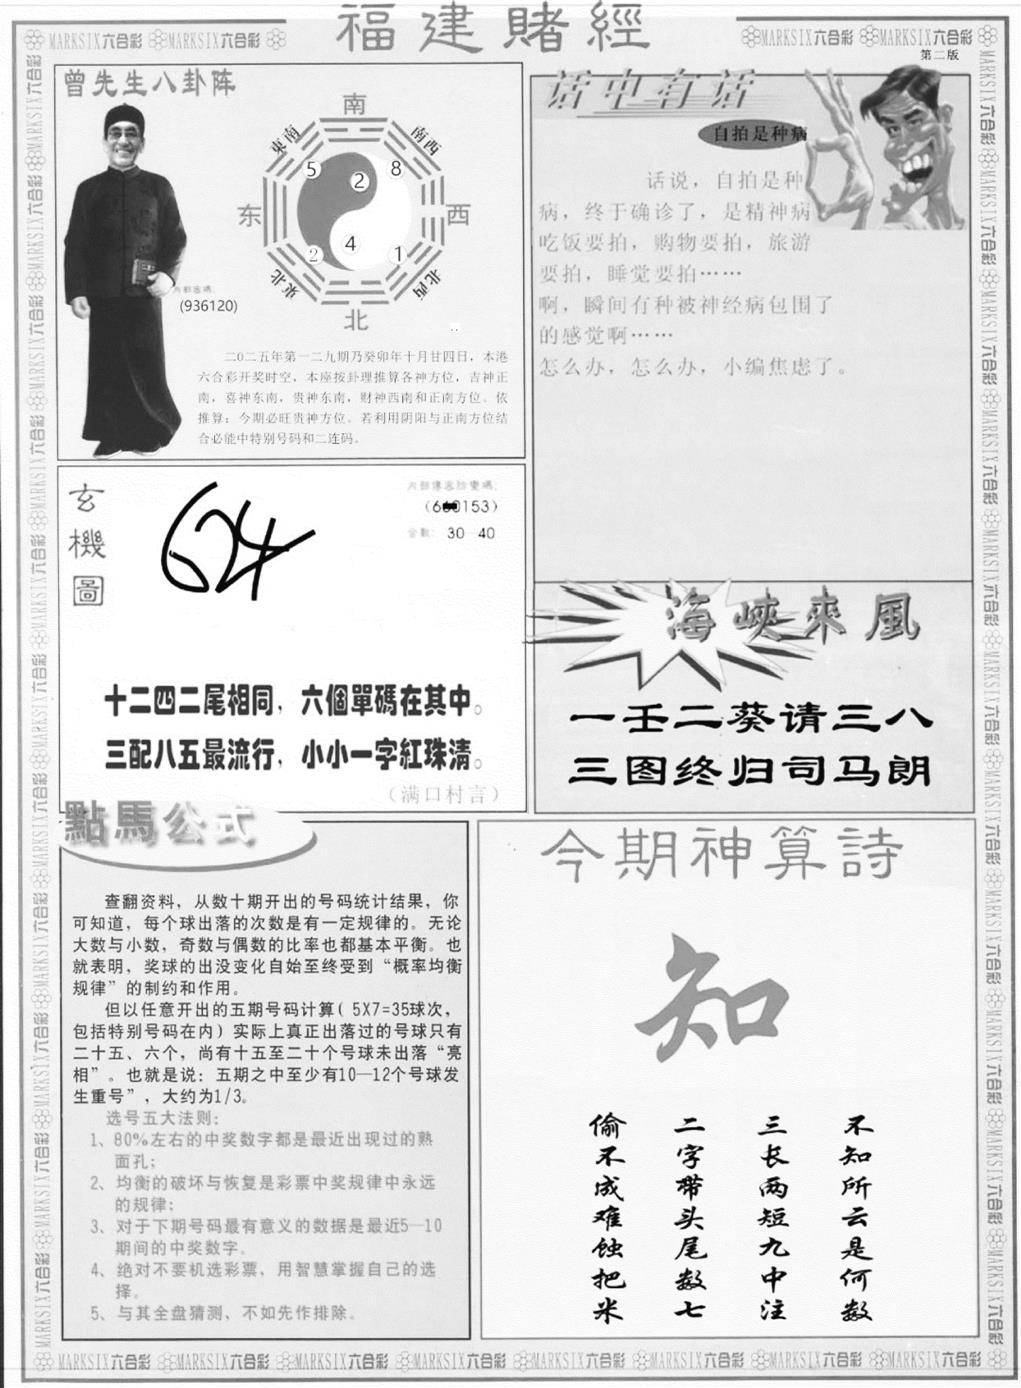 福建賭經
MARKSIX六合彩 MARKSIX六合彩
MARKSIX六合彩 MARKSIX六合彩
第二版
曾先生八卦阵
南
東南
南西
5
2
8
东
西
2
4
1
東北
北西
北
内部密碼:
(936120)
二0二五年第一二九期乃癸卯年十月廿四日，本港
六合彩开奖时空，本座按卦理推算各神方位，吉神正
南，喜神东南，贵神东南，财神西南和正南方位。依
推算：今期必旺贵神方位。若利用阴阳与正南方位结
合必能中特别号码和二连码。
话中有话
自拍是种病
话说，自拍是种
病，终于确诊了，是精神病
吃饭要拍，购物要拍，旅游
要拍，睡觉要拍……
啊，瞬间有种被神经病包围了
的感觉啊……
怎么办，怎么办，小编焦虑了。
玄機圖
624
(6 0153)
合數: 30 40
十二四二尾相同，六個單碼在其中。
三配八五最流行，小小一字紅珠清。
（满口村言）
海峽來風
一壬二葵请三八
三图终归司马朗
點馬公式
查翻资料，从数十期开出的号码统计结果，你
可知道，每个球出落的次数是有一定规律的。无论
大数与小数，奇数与偶数的比率也都基本平衡。也
就表明，奖球的出没变化自始至终受到“概率均衡
规律”的制约和作用。
但以任意开出的五期号码计算( 5X7=35球次，
包括特别号码在内）实际上真正出落过的号球只有
二十五、六个，尚有十五至二十个号球未出落“亮
相”。也就是说：五期之中至少有10—12个号球发
生重号”，大约为1/3。
选号五大法则:
1、80%左右的中奖数字都是最近出现过的熟
面孔；
2、均衡的破坏与恢复是彩票中奖规律中永远
的规律；
3、对于下期号码最有意义的数据是最近5—10
期间的中奖数字。
4、绝对不要机选彩票，用智慧掌握自己的选
择。
5、与其全盘猜测，不如先作排除。
今期神算詩
知
不知所云是何数
三长两短九中注
二字带头尾数七
偷不成难蚀把米
MARKSIX六合彩 MARKSIX六合彩 MARKSIX六合彩 MARKSIX六合彩 MARKSIX六合彩 MARKSIX六合彩 MARKSIX六合彩 MARKSIX六合彩